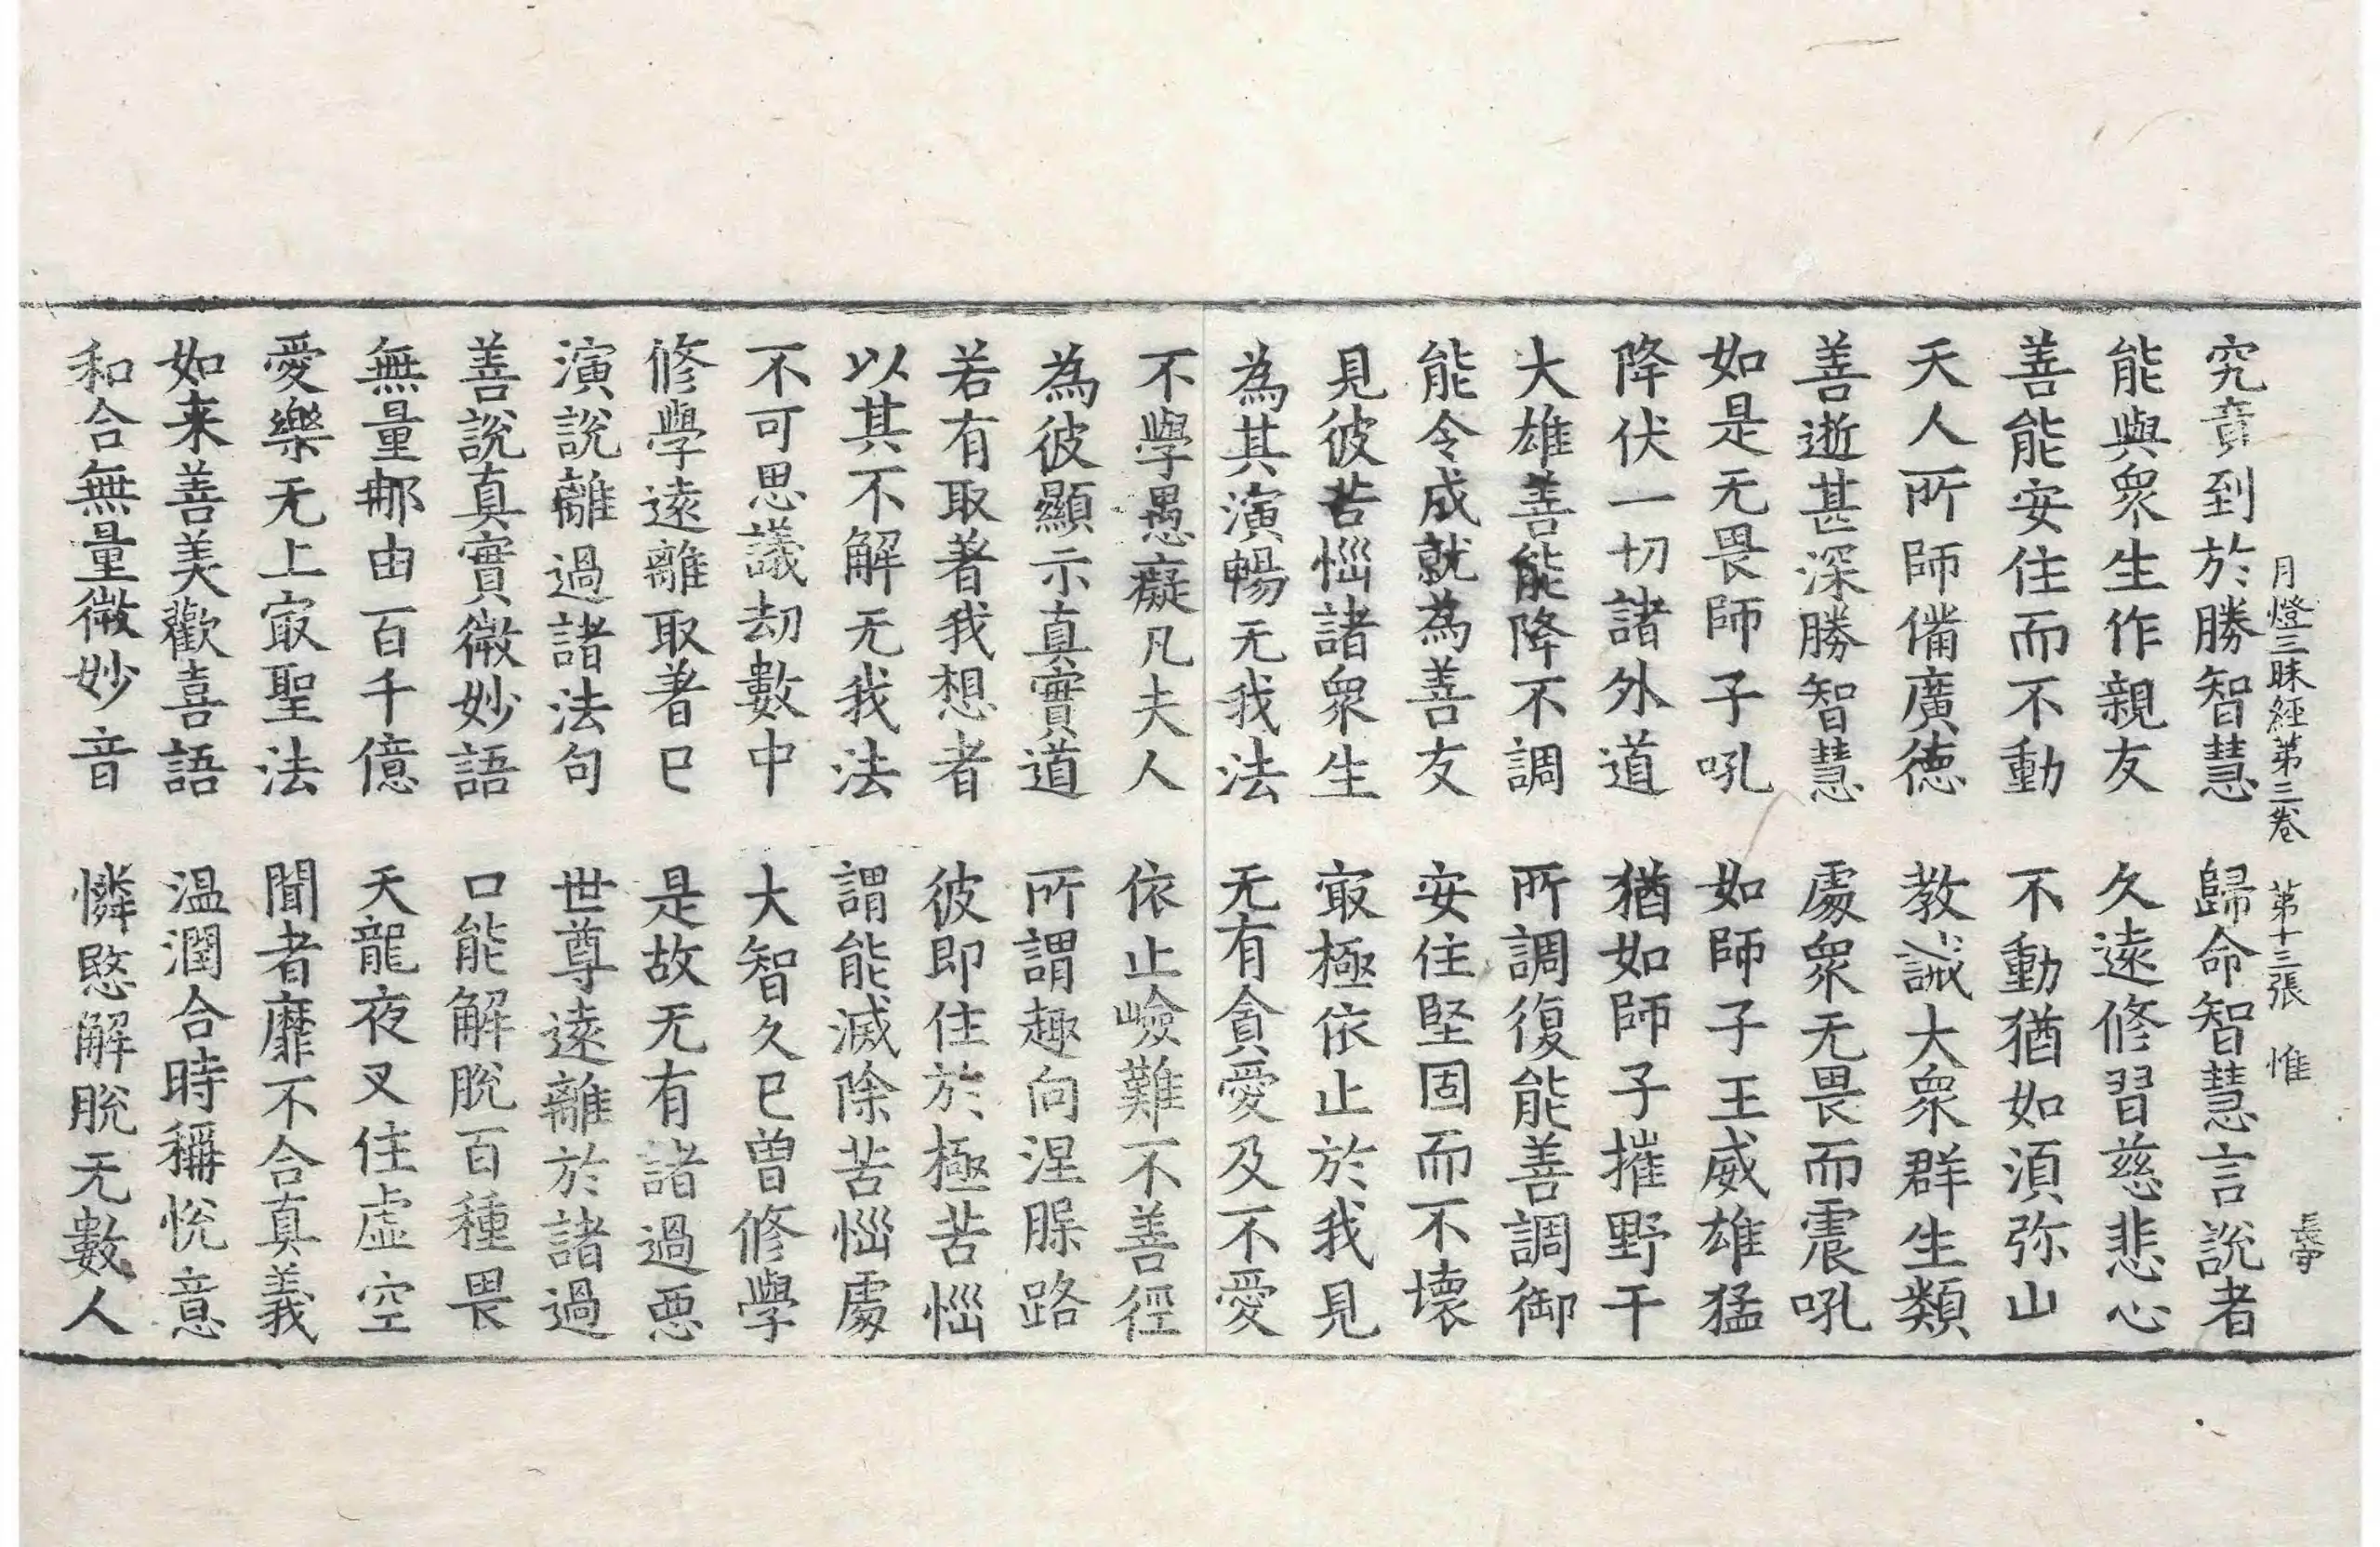 月燈三昧經第三卷 第十三張 惟 長守
究竟到於勝智慧 歸命智慧言說者
能與衆生作親友 久遠修習慈悲心
善能安住而不動 不動猶如須弥山
天人所師備廣徳 教誡大衆群生類
善逝甚深勝智慧 處衆无畏而震吼
如是无畏師子吼 如師子王威雄猛
降伏一切諸外道 猶如師子摧野干
大雄善能降不調 所調復能善調御
能令成就為善友 安住堅固而不壞
見彼苦惱諸衆生 㝡極依止於我見
為其演暢无我法 无有貪愛及不愛
不學愚癡凡夫人 依止嶮難不善徑
為彼顯示真實道 所謂趣向涅槃路
若有取著我想者 彼即住於極苦惱
以其不解无我法 謂能滅除苦惱處
不可思議劫數中 大智久已曾修學
修學遠離取著已 是故无有諸過惡
演說離過諸法句 世尊遠離於諸過
善說真實微妙語 口能解脫百種畏
無量那由百千億 天龍夜叉住虛空
愛樂无上㝡聖法 聞者靡不合真義
如来善美歡喜語 温潤合時稱悅意
和合無量微妙音 憐愍解脫无數人